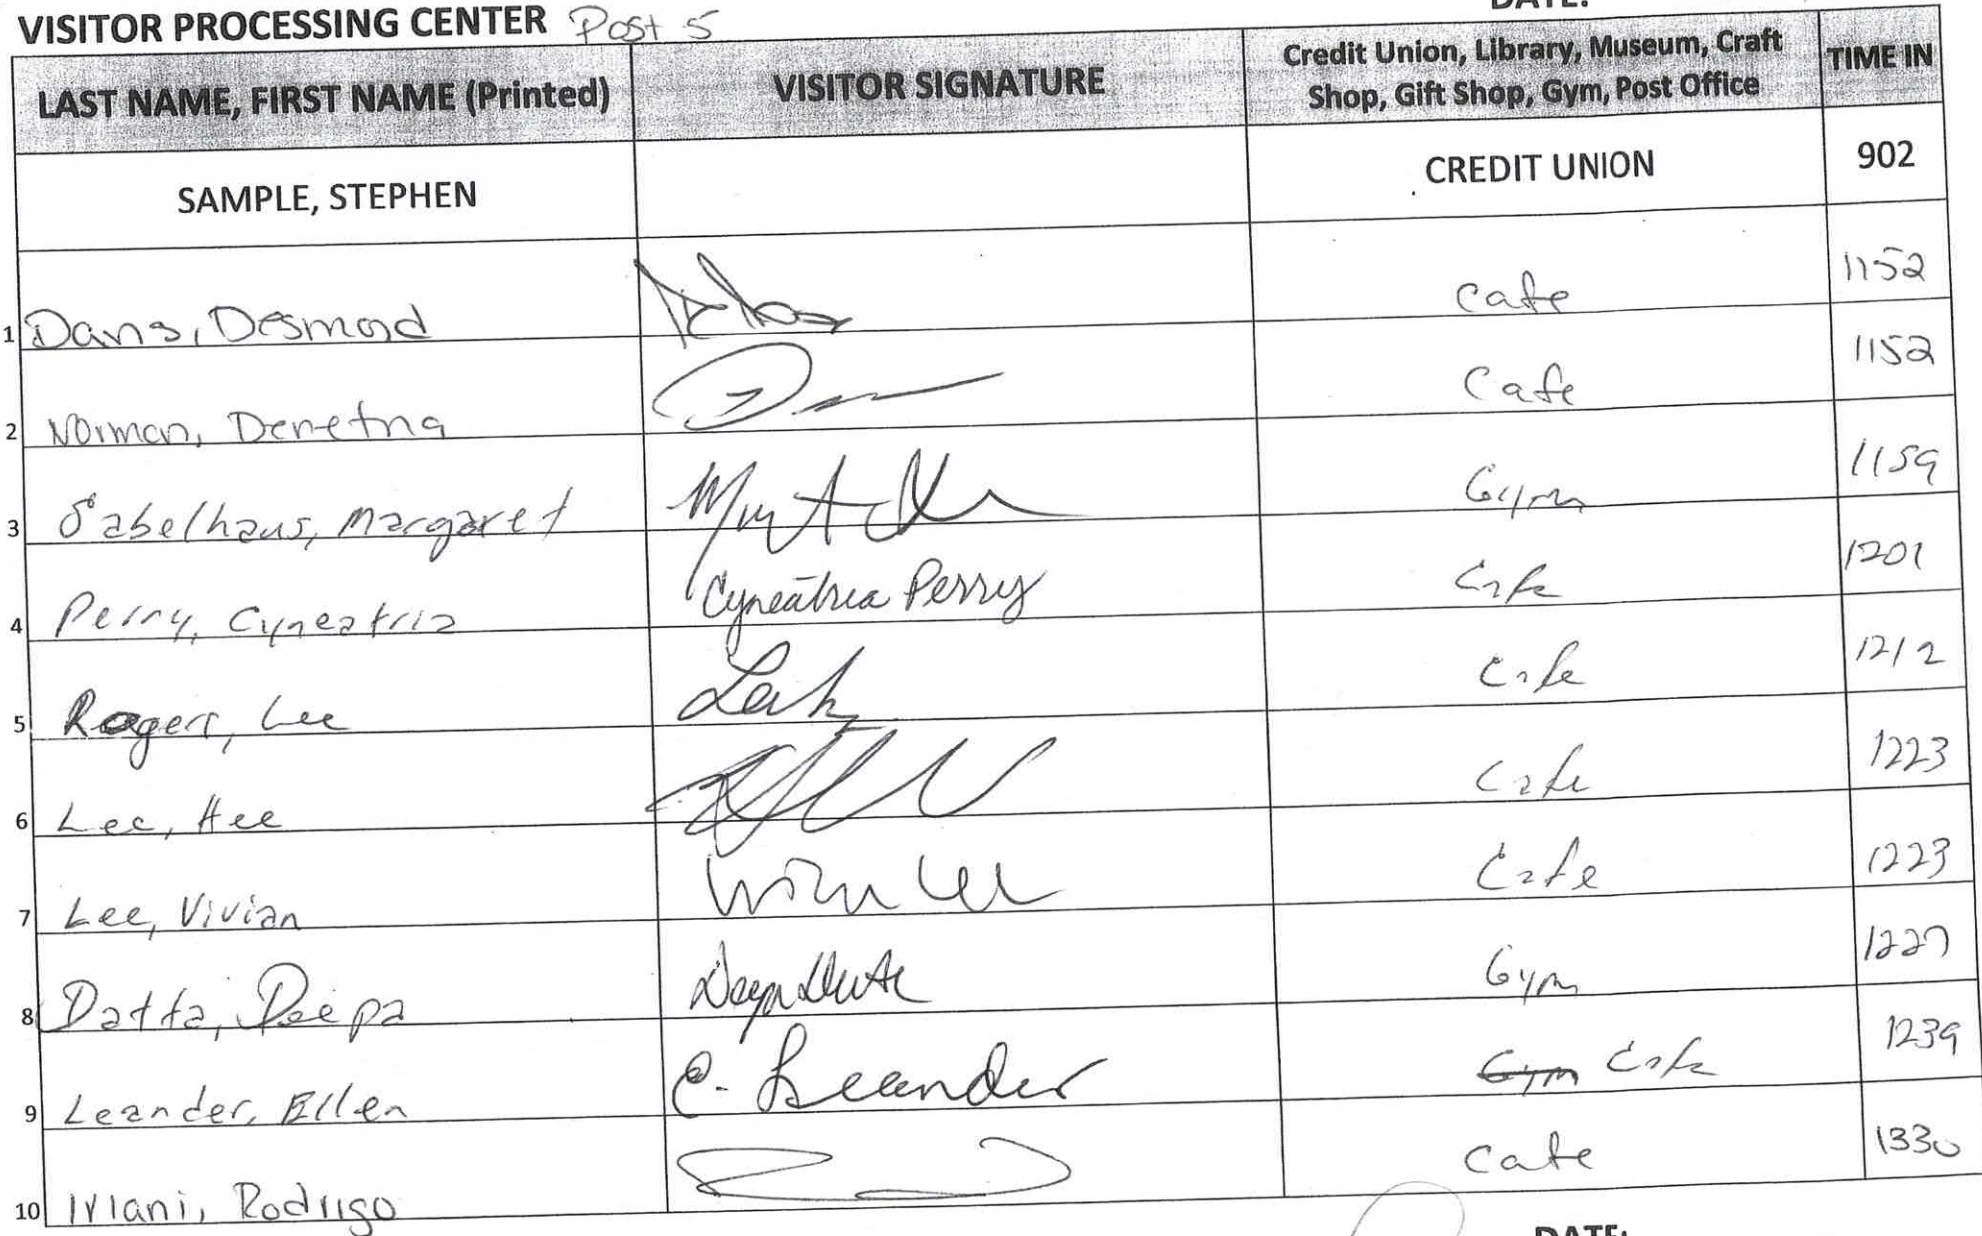 VISITOR PROCESSING CENTER Post 5
DATE:
LAST NAME, FIRST NAME (Printed) VISITOR SIGNATURE Credit Union, Library, Museum, Craft Shop, Gift Shop, Gym, Post Office TIME IN
SAMPLE, STEPHEN CREDIT UNION 902
1 Davis, Desmond Cafe 1152
2 Norman, Cafe 1152
3 Sabelhaus, Margaret Gym 1159
4 Perry, Cyneatria Cyneatria Perry Cafe 1201
5 Rogers, Lee Cafe 1212
6 Lee, Hee Cafe 1223
7 Lee, Vivian Cafe 1223
8 Datta, Deepa Gym 1227
9 Leander, Ellen E. Leander Gym Cafe 1239
10 Rodrigo Cafe 1330
DATE: